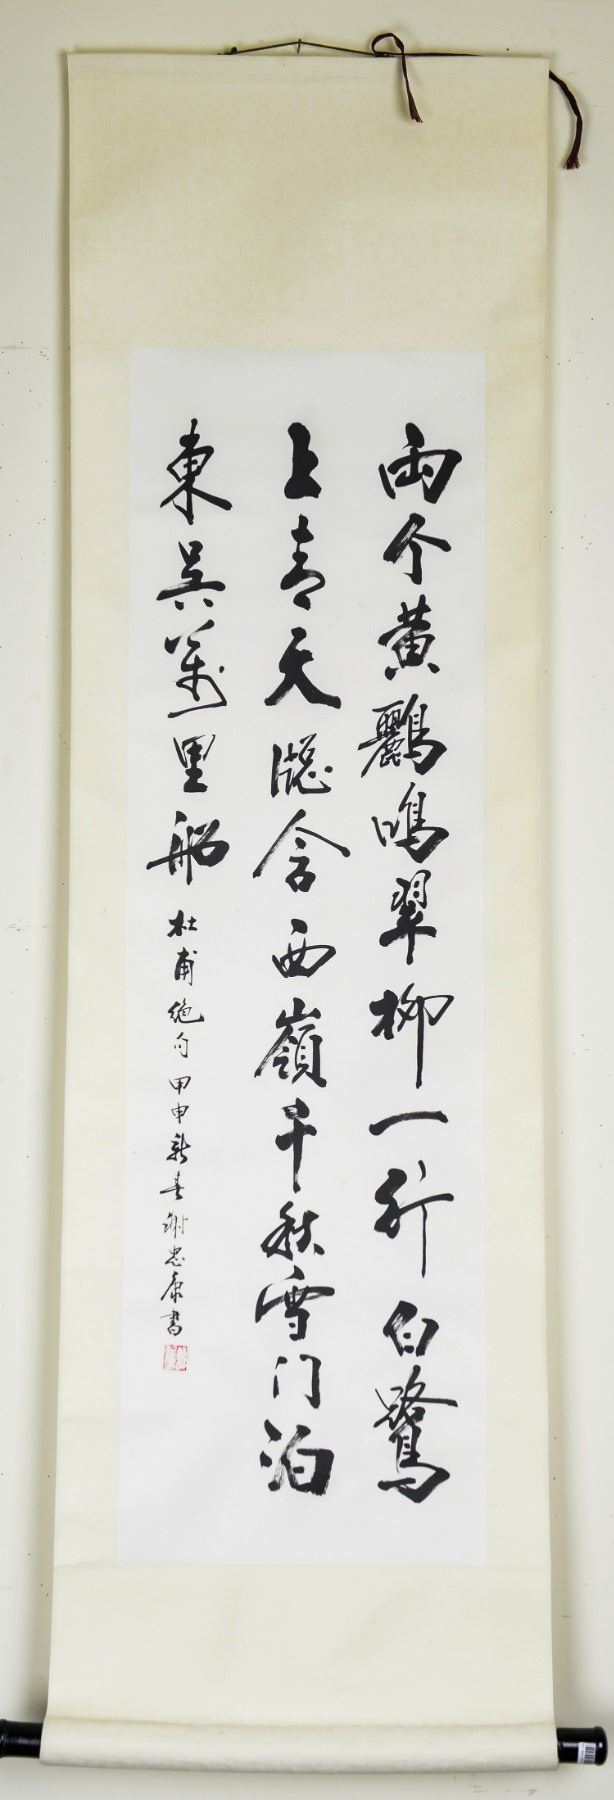 两个黄鸝鳴翠柳一行白鷺
上青天牕含西嶺千秋雪门泊
東吴萬里船
杜甫絶句甲申新春谢忠康書